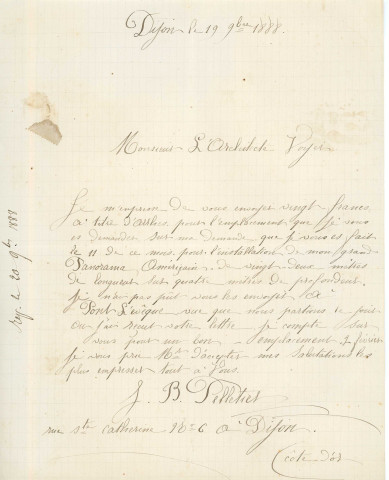 Dijon le 19 9bre 1888.
Monsieur L'Architecte Voyer
Je m'empresse de vous envoyer vingt francs
à titre d'arrhes pour l'emplacement que j'ai vous
ai demander sur ma demande que j'ai vous ai fait
le 11 de ce mois pour l'installation de mon grand
Panorama Amériquin de vingt deux mètres
de longueur sur quatre mètres de profondeur.
Je n'avais pas put vous les envoyer à
Pont l'evêque vue que nous partions le jour
on j'ai reçut votre lettre je compte sur
vous pour un bon emplacement
je vous prie Mr d'accepter mes salutations les
plus empresser tout à vous.
J. B. Pelletier
rue Ste catherine No 6 à Dijon.
(côte d'or
rep. le 20 9bre 1888